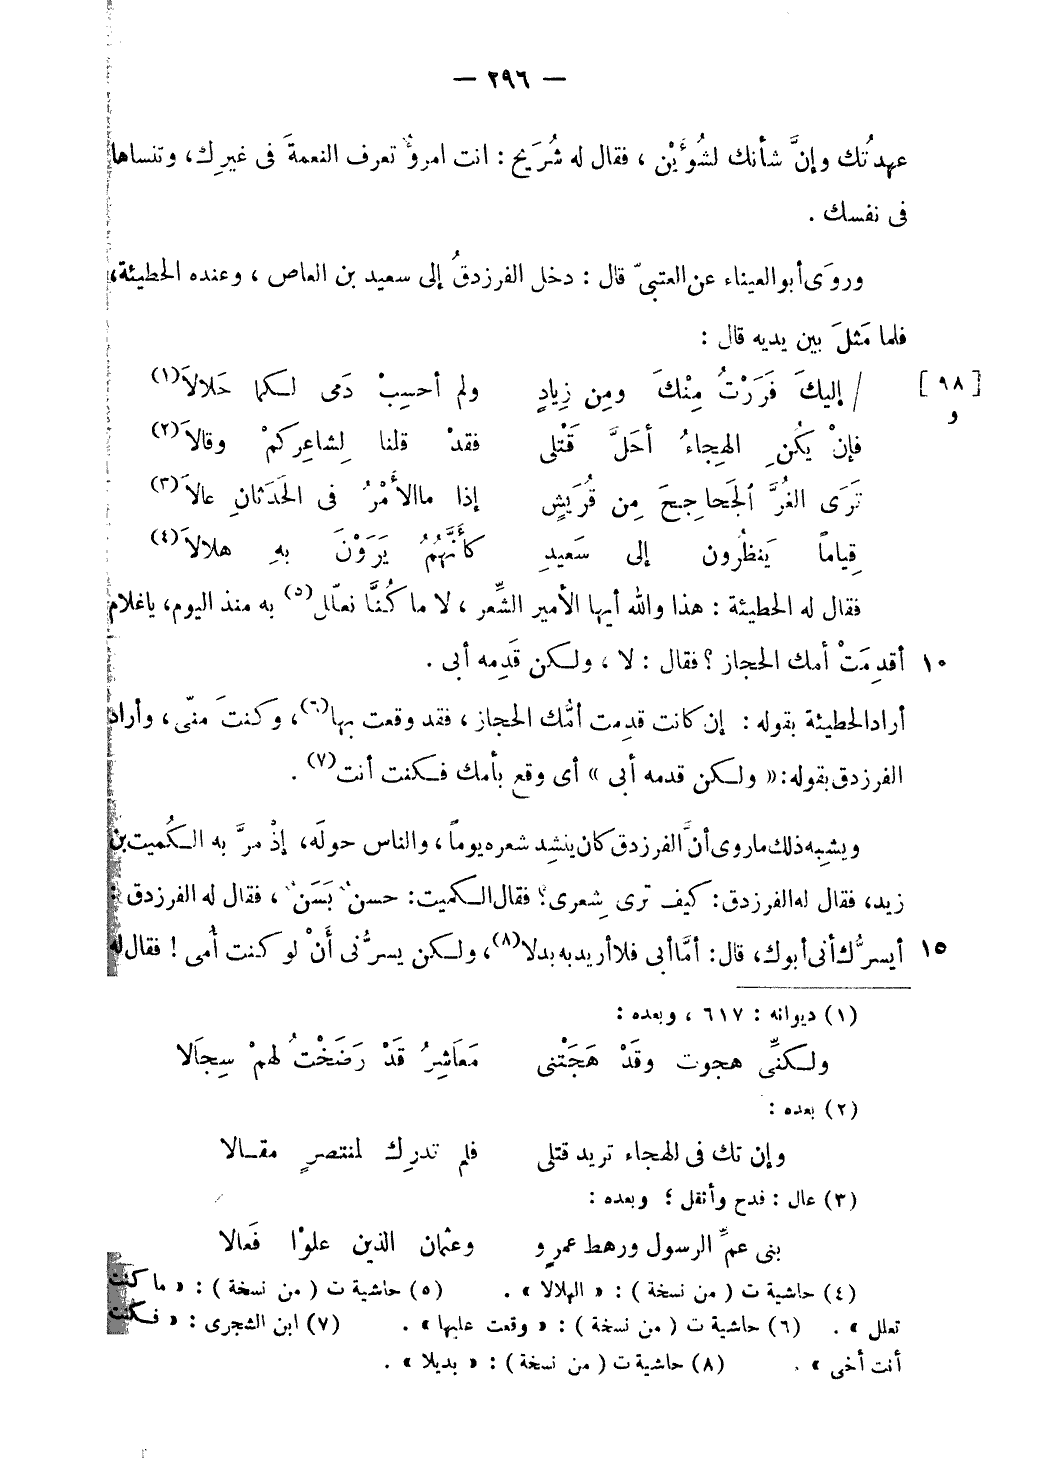 — ٢٩٦ —
عهدتُك وإنَّ شأنك لشُؤَيْن ، فقال له شُرَيح : انت امرؤٌ تعرف النعمةَ فى غيرِك، وتنساها
فى نفسك .
وروَى أبو العيناء عن العتبىّ قال : دخل الفرزدقُ إلى سعيد بن العاص ، وعنده الحطيئة،
فلما مَثلَ بين يديه قال :
[٩٨ / إليكَ فَرَرْتُ مِنْكَ ومِن زِيادٍ ولم أحسِبْ دَمى لكما حَلالاَ(١)
و]
فإنْ يكُنِ الهِجاءُ أحَلَّ قَتْلى فقدْ قلنا لِشاعِركمْ وقالاَ(٢)
تَرَى الغُرَّ الجَحاجِحَ مِن قُرَيشٍ إذا ما الأَمْرُ فى الحَدَثانِ عالاَ(٣)
قِياماً يَنظُرون إلى سَعيدِ كأنَّهُمُ يَرَوْنَ بهِ هلالاَ(٤)
فقال له الحطيئة : هذا والله أيها الأمير الشِّعر ، لا ما كُنَّا نعلّل(٥) به منذ اليوم، ياغلام
١٠ أقدِمَتْ أمك الحجاز ؟ فقال : لا ، ولكن قَدِمه أبى .
أراد الحطيئة بقوله : إن كانت قدِمت أمُّك الحجاز ، فقد وقعت بها(٦)، وكنتَ منّى ، وأراد
الفرزدق بقوله: « ولكن قدمه أبى » أى وقع بأمك فكنت أنت(٧) .
ويشبِه ذلك ما روى أنَّ الفرزدق كان ينشِد شعره يوماً ، والناس حولَه، إذْ مرَّ به الكُميت بن
زيد، فقال له الفرزدق: كيف ترى شِعرى؟ فقال الكميت: حسنٌ بَسَنٌ ، فقال له الفرزدق :
١٥ أيسرُّك أنى أبوك، قال: أمَّا أبى فلا أريد به بدلا(٨)، ولكن يسرُّنى أنْ لو كنت أمى ! فقال له
(١) ديوانه : ٦١٧ ، وبعده :
ولكنِّى هجوت وقَدْ هَجَتْنى مَعَاشِرُ قَدْ رَضَخْتُ لهمْ سِجالا
(٢) بعده :
وإن تك فى الهجاء تريد قتلى فلم تدرِك لمنتصرٍ مقالا
(٣) عال : فدح وأثقل ؛ وبعده :
بنى عمِّ الرسول ورهط عمرٍو وعثمان الذين علوْا فَعالا
(٤) حاشية ت ( من نسخة ) : « الهلالا » . (٥) حاشية ت ( من نسخة ) : « ما كنت
تعلل » . (٦) حاشية ت ( من نسخة ) : « وقعت عليها » . (٧) ابن الشجرى : « فكنت
أنت أخى » . (٨) حاشية ت ( من نسخة ) : « بديلا » .